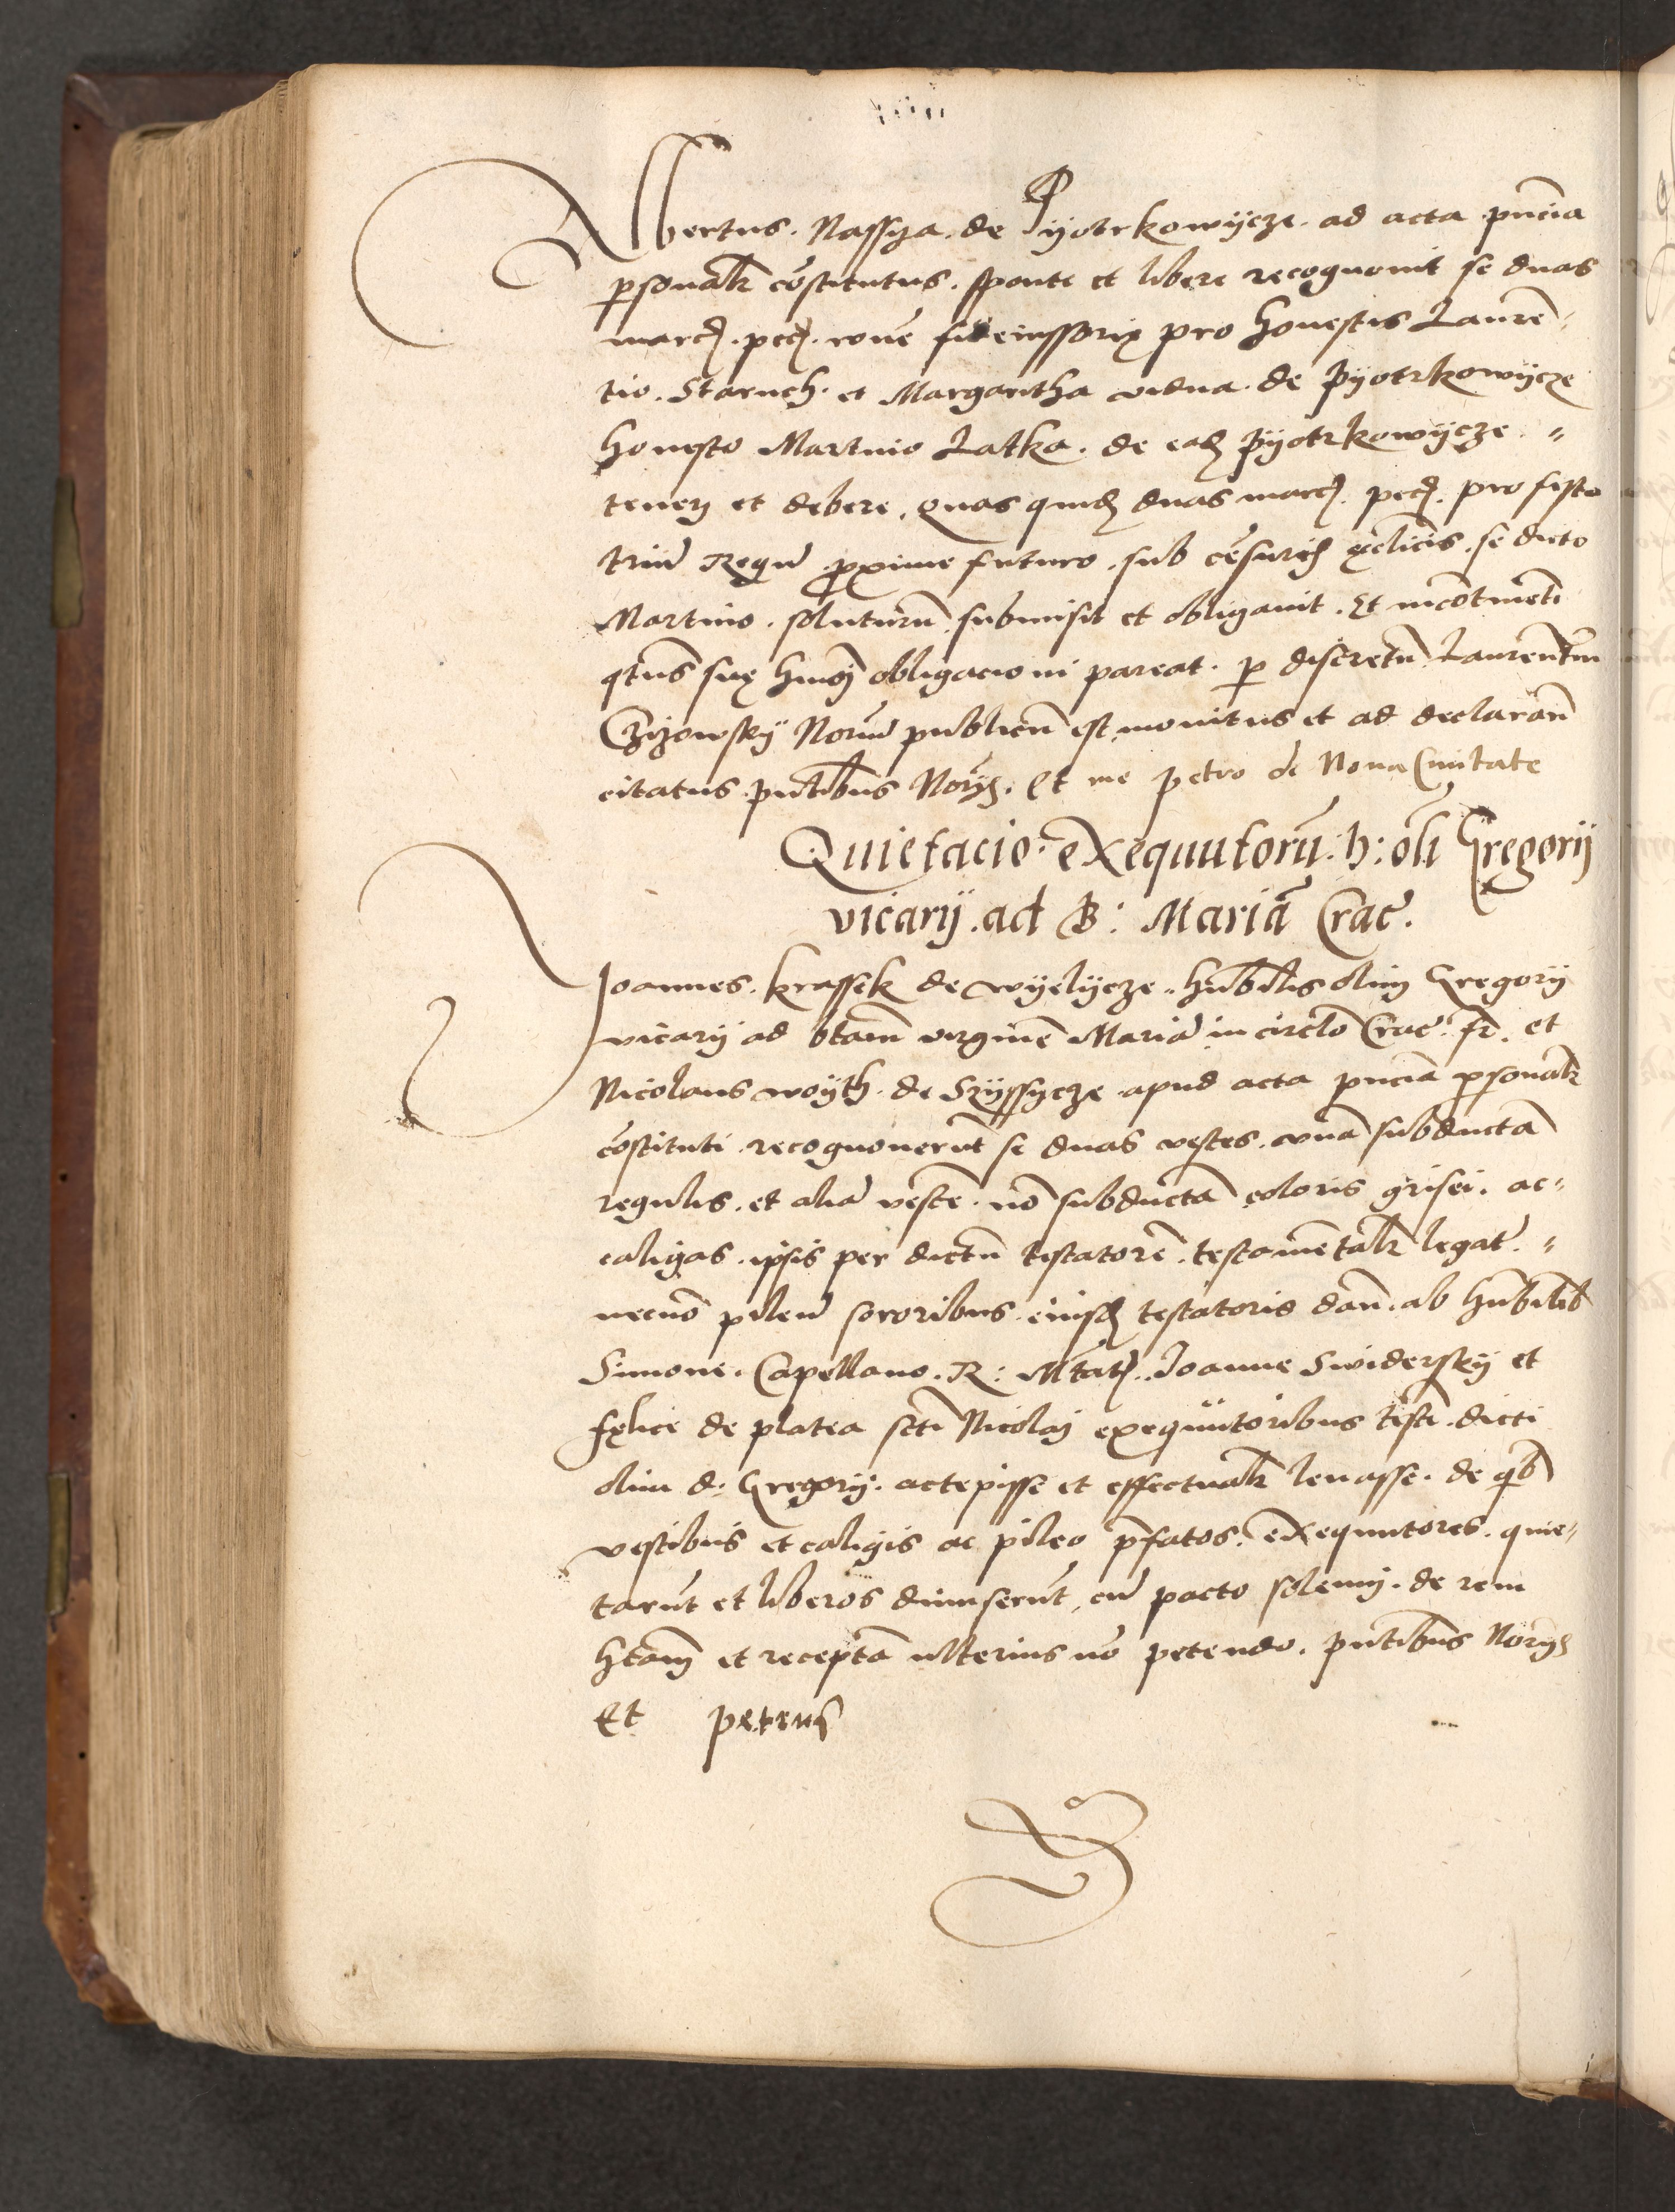 Albertus. Nassya. de Pyotrkowycze. ad acta pn̄cia
ꝑsonalr̄ cōstitutus. sponte et libere recognovit se duas
marcꝭ. pecꝭ. rōne fideiussorię pro honestis Laurē-
tio. Staruch. et Margaretha vidua de Pyotrkowycze
honesto Martino Latka. de eadꝫ Pyotrkowycze. -
tenerj et debere. quas quidꝫ duas marcꝭ. pecꝭ. pro festo
triū Regū proxime futuro. sub cēsuris ęcclīcis. se dicto
Martino. soluturū. submisit et obligavit. Et incōtinēti
qtus suę hmōj obligacioni pareat. ꝑ discretū Laurentiū
Notriū publicū est monitus et ad declarari
citatus. pn̄tibus Nōrijs. Et me petro de Nova Civitate
Quietacio. exequutorū. h: olī Gregorij
vicarij. ad B: Mariā Crac̄.
Joannes. krassek de wyelycze. hūbilis olim Gregorij
vicarij ad btām virginē Mariā in circlo Crac̄. fr̄. et
Nicolaus woyth. de apud acta pn̄cia ꝑsonalr̄
cōstituti recognoverūt se duas vestes. vnā subductā
regulis. et aliā vestē. nō subductā coloris grisei. ac-
caligas. ipsis per dictū testatorē. testamētalr̄ legat̄. -
necnō pileū sororibus eiusdꝫ testatoris dari. ab hūbilib
Simone. Capellano. R: Mtatꝭ. Joanne Swidersky et
fęlice de platea scti Nicolaj exequutoribus testi. dicti
olim d. Gregorij. accepisse et effectualr̄ levasse. de qb
vestibus et caligis ac pileo p̄fatos. exequutores. quie-
tarūt et liberos dimiserūt, cū pacto solennj. de rem
hītam et receptā ulterius nō petendo. pn̄tibus Nōrijs
Et petrus